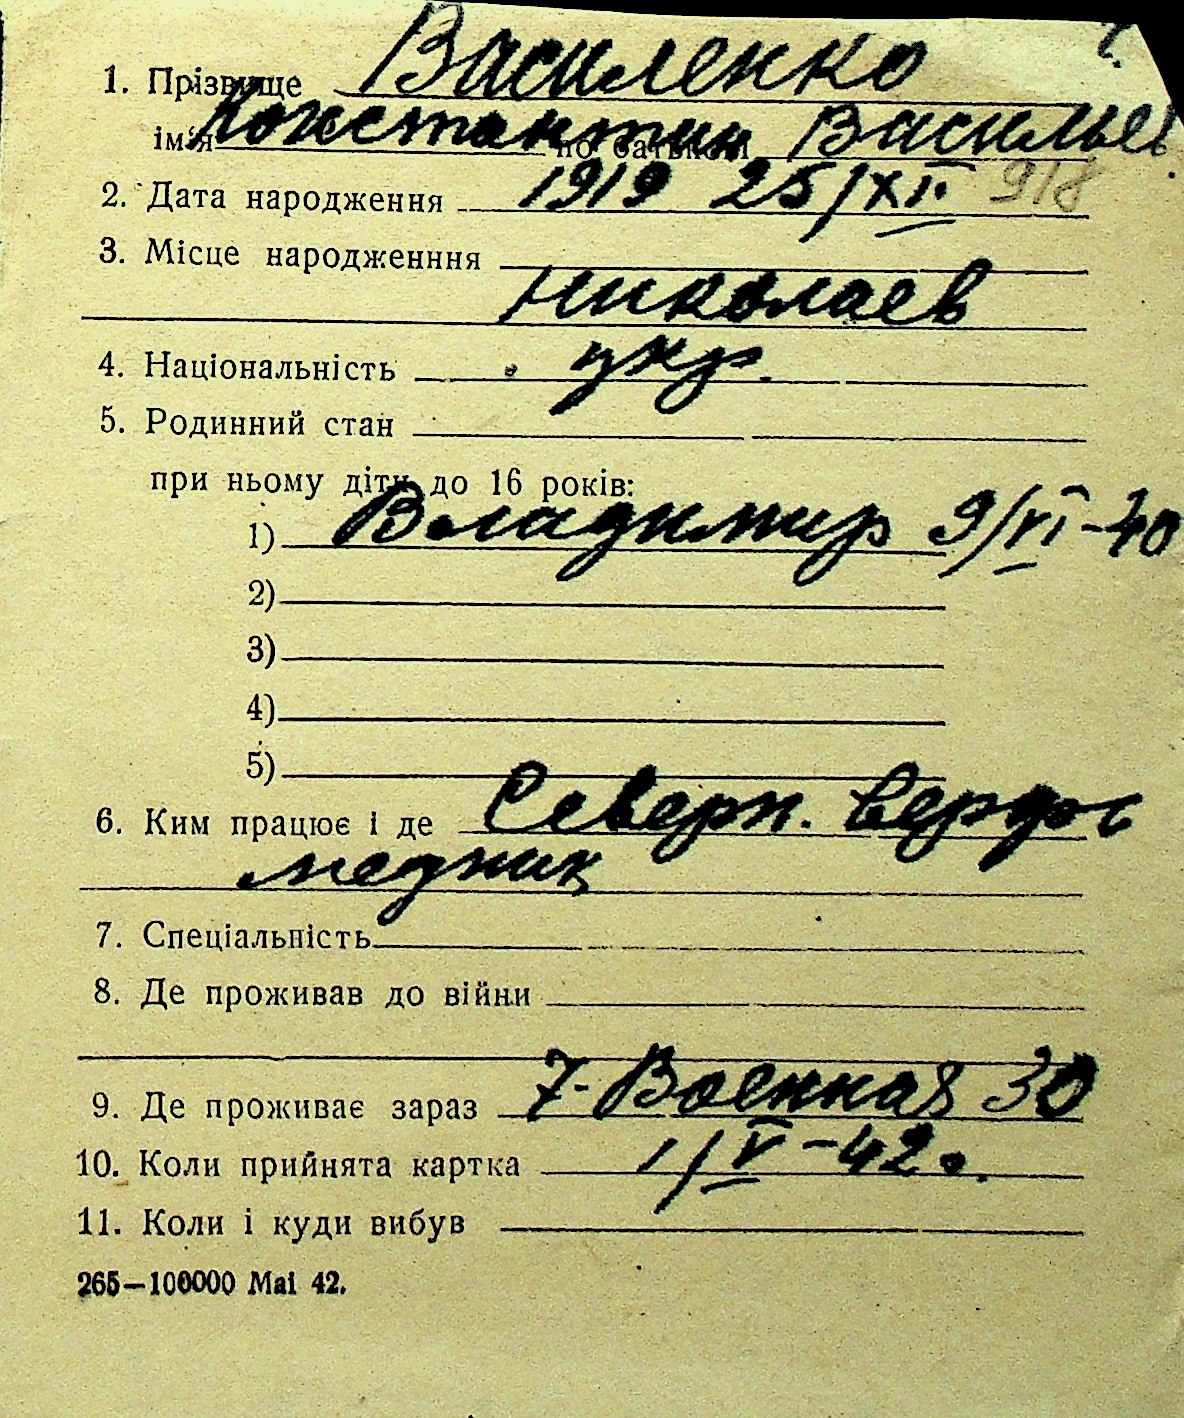 1. Прізвище Василенко
ім'я Константин по батькові Васильев
2. Дата народження 1919 25/XI. 918
3. Місце народженння
Николаев
4. Національність укр.
5. Родинний стан
при ньому діти до 16 років:
1) Владимир 9/VI-40
2)
3)
4)
5)
6. Ким працює і де Северн. верфь
медник
7. Спеціальність
8. Де проживав до війни
9. Де проживає зараз 7-Военная 30
10. Коли прийнята картка 1/V-42г.
11. Коли і куди вибув
265—100000 Mai 42.